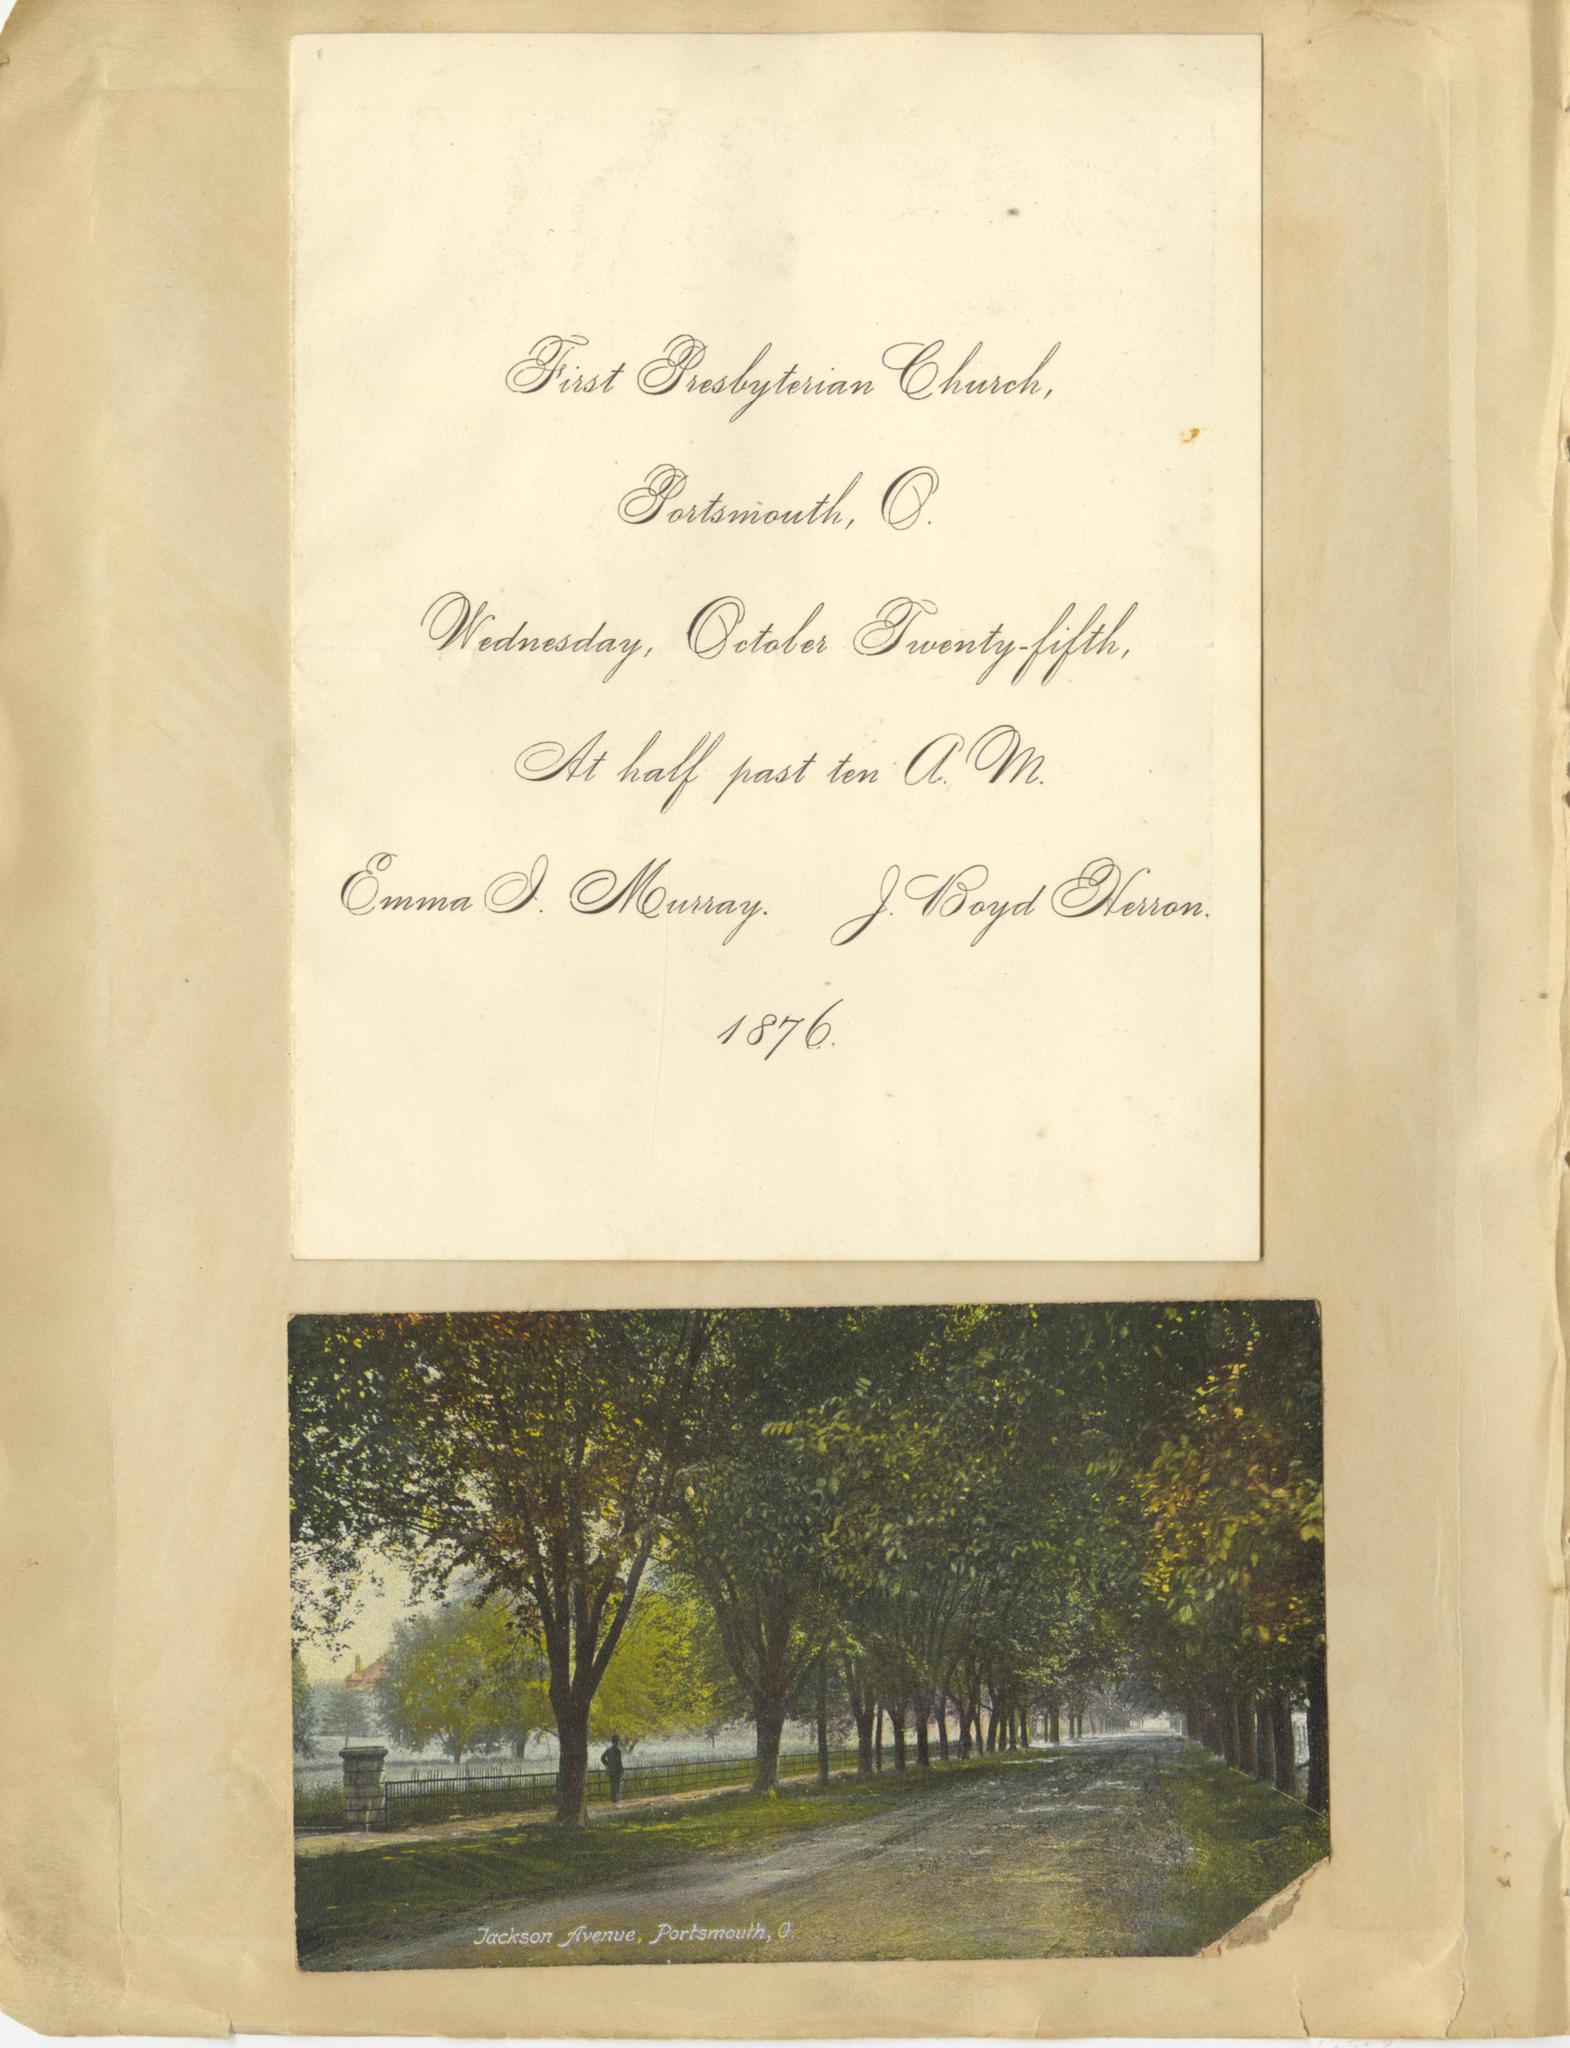 First Presbyterian Church,
Portsmouth, O.
Wednesday, October Twenty-fifth,
At half past ten A. M.
Emma I. Murray. J. Boyd Herron.
1876.
Jackson Avenue, Portsmouth, O.